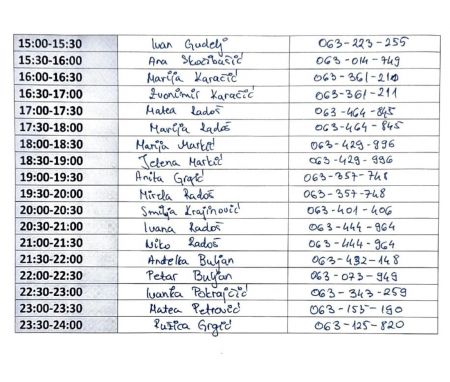 15:00-15:30 Ivan Gudelj 063-223-255
15:30-16:00 Ana Skočibačić 063-014-749
16:00-16:30 Marija Karačić 063-361-210
16:30-17:00 Zvonimir Karačić 063-361-211
17:00-17:30 Matea Radoš 063-464-845
17:30-18:00 Marija Radoš 063-464-845
18:00-18:30 Marija Markić 063-429-996
18:30-19:00 Jelena Markić 063-429-996
19:00-19:30 Anita Grgić 063-357-748
19:30-20:00 Mirela Radoš 063-357-748
20:00-20:30 Smilja Krajinović 063-401-406
20:30-21:00 Ivana Radoš 063-444-964
21:00-21:30 Niko Radoš 063-444-964
21:30-22:00 Anđelka Buljan 063-432-148
22:00-22:30 Petar Buljan 063-073-949
22:30-23:00 Ivanka Pokrajčić 063-343-259
23:00-23:30 Matea Petrović 063-155-190
23:30-24:00 Ružica Grgić 063-125-820